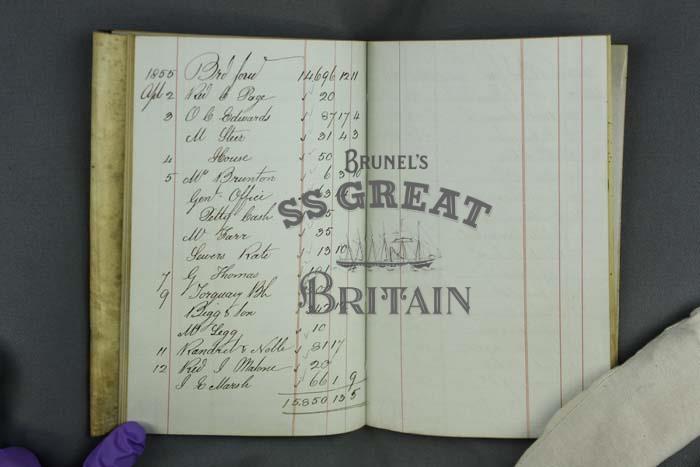 1855 Brd ford 14696 12 11
Apl 2 Red C Page 20
3 O C Edwards 87 17 4
M Steer 31 4 3
4 House 50
5 Mr Brunton 6 3
Genl Office
Petty Cash
Mr Farr 35
Sewers Rate 13 10
7 G Thomas
9 Torquay Bk
Bigg & Son
Mr Legg 10
11 & Noble 81 17
12 Red J Malone 20
J E Marsh 66 1 9
15850 13 5
BRUNEL'S
SS GREAT
BRITAIN